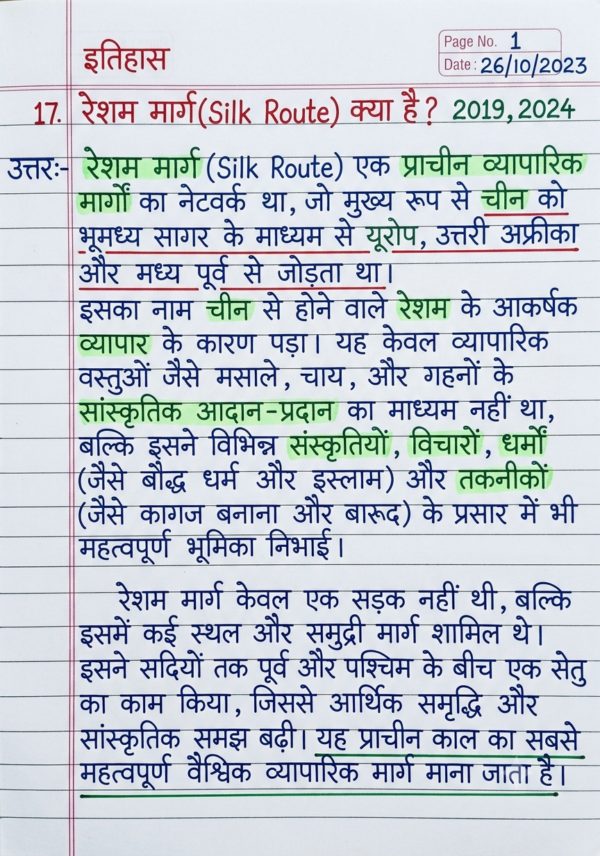 इतिहास
Page No. 1
Date: 26/10/2023
17. रेशम मार्ग (Silk Route) क्या है? 2019, 2024
उत्तरः- रेशम मार्ग (Silk Route) एक प्राचीन व्यापारिक
मार्गों का नेटवर्क था, जो मुख्य रूप से चीन को
भूमध्य सागर के माध्यम से यूरोप, उत्तरी अफ्रीका
और मध्य पूर्व से जोड़ता था।
इसका नाम चीन से होने वाले रेशम के आकर्षक
व्यापार के कारण पड़ा। यह केवल व्यापारिक
वस्तुओं जैसे मसाले, चाय, और गहनों के
सांस्कृतिक आदान-प्रदान का माध्यम नहीं था,
बल्कि इसने विभिन्न संस्कृतियों, विचारों, धर्मों
(जैसे बौद्ध धर्म और इस्लाम) और तकनीकों
(जैसे कागज बनाना और बारूद) के प्रसार में भी
महत्वपूर्ण भूमिका निभाई।
रेशम मार्ग केवल एक सड़क नहीं थी, बल्कि
इसमें कई स्थल और समुद्री मार्ग शामिल थे।
इसने सदियों तक पूर्व और पश्चिम के बीच एक सेतु
का काम किया, जिससे आर्थिक समृद्धि और
सांस्कृतिक समझ बढ़ी। यह प्राचीन काल का सबसे
महत्वपूर्ण वैश्विक व्यापारिक मार्ग माना जाता है।